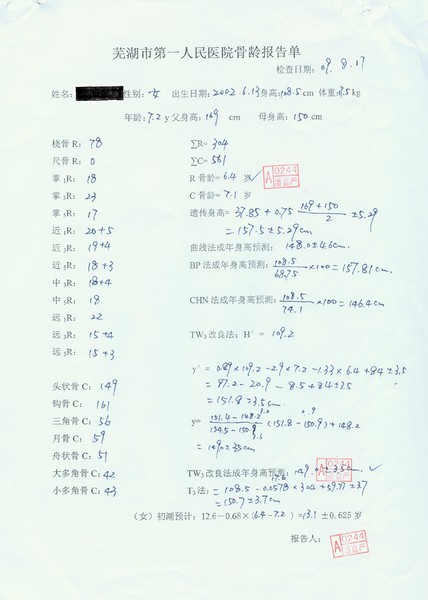 芜湖市第一人民医院骨龄报告单
检查日期: 09. 8. 17
姓名: 性别: 女 出生日期: 2002. 6.13 身高: 108.5 cm 体重: kg
年龄: 7.2 y 父身高: 169 cm 母身高: 150 cm
桡骨 R: 78 ΣR= 304
尺骨 R: 0 ΣC= 561
掌₁R: 18 R 骨龄= 6.4 岁 A 0244
掌₃R: 23 C 骨龄= 7.1 岁
掌₅R: 17 遗传身高= 37.85 + 0.75 (169+150)/2 ±5.29
近₁R: 20+5 = 157.5 ± 5.29cm
近₃R: 19+4 曲线法成年身高预测: 148.0±4.6cm.
近₅R: 18+3 BP 法成年身高预测: 108.5/68.75 ×100 = 157.81cm.
中₃R: 18+4
中₅R: 18 CHN 法成年身高预测: 108.5/74.1 ×100 = 146.4cm
远₁R: 22
远₃R: 15+4 TW₃ 改良法: H' = 109.2
远₅R: 15+3
y' = 0.89×109.2 -2.9×7.2 -1.33×6.4 +84 ±3.5
头状骨 C: 149 = 97.2 - 20.9 - 8.5 +84 ±3.5
钩骨 C: 161 = 151.8 ±3.5cm
三角骨 C: 56 y= (151.8 -150.9) + 148.2
月骨 C: 59 = 149.0 ±3.5cm
舟状骨 C: 51
大多角骨 C: 42 TW₃ 改良法成年身高预测: 149.0±3.5cm A 0244
小多角骨 C: 43 T₃ 法: = 108.5 -0.0578 × 304 + 59.77 ±3.7
= 150.7 ± 3.7cm
(女) 初潮预计: 12.6－0.68×(6.4 -7.2) =13.1 ±0.625 岁
报告人: A 0244